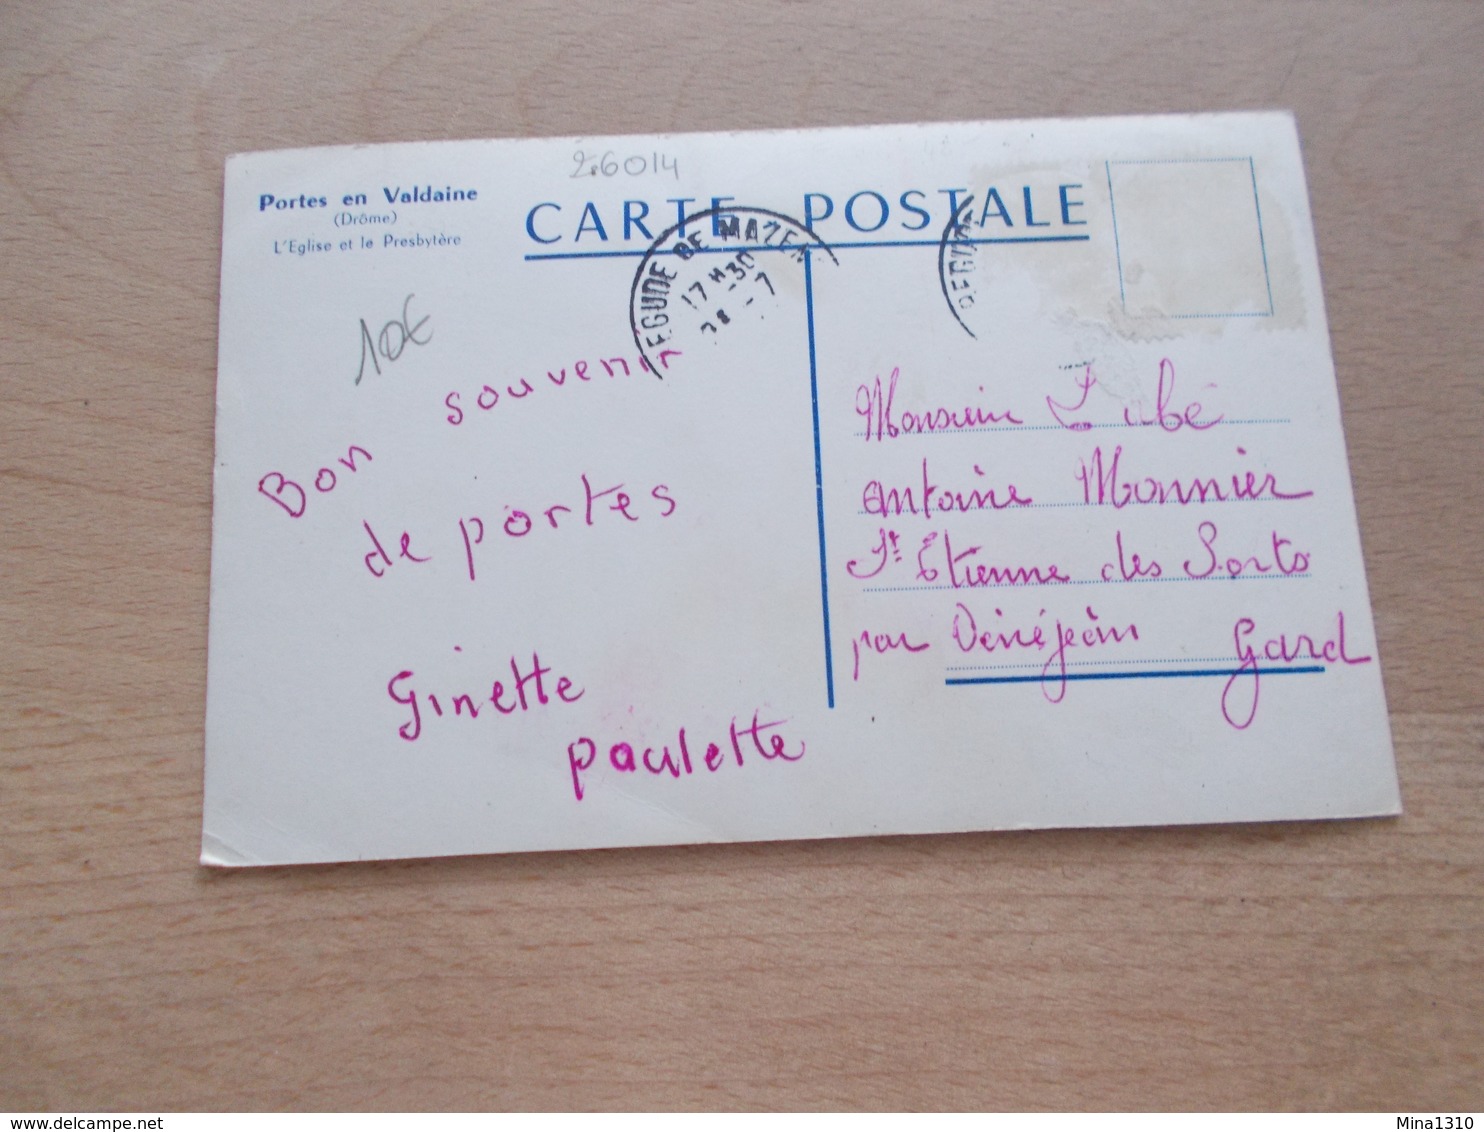 26014
Portes en Valdaine
(Drôme)
L'Eglise et le Presbytère
CARTE POSTALE
EGUDE DE MAZEN
17 H 30
- 7
10€
Bon souvenir
de portes
Ginette
paulette
Monsieur L'abé
antoine Monnier
St Etienne des Sorts
par Vénéjean Gard
delcampe.net
Mina1310